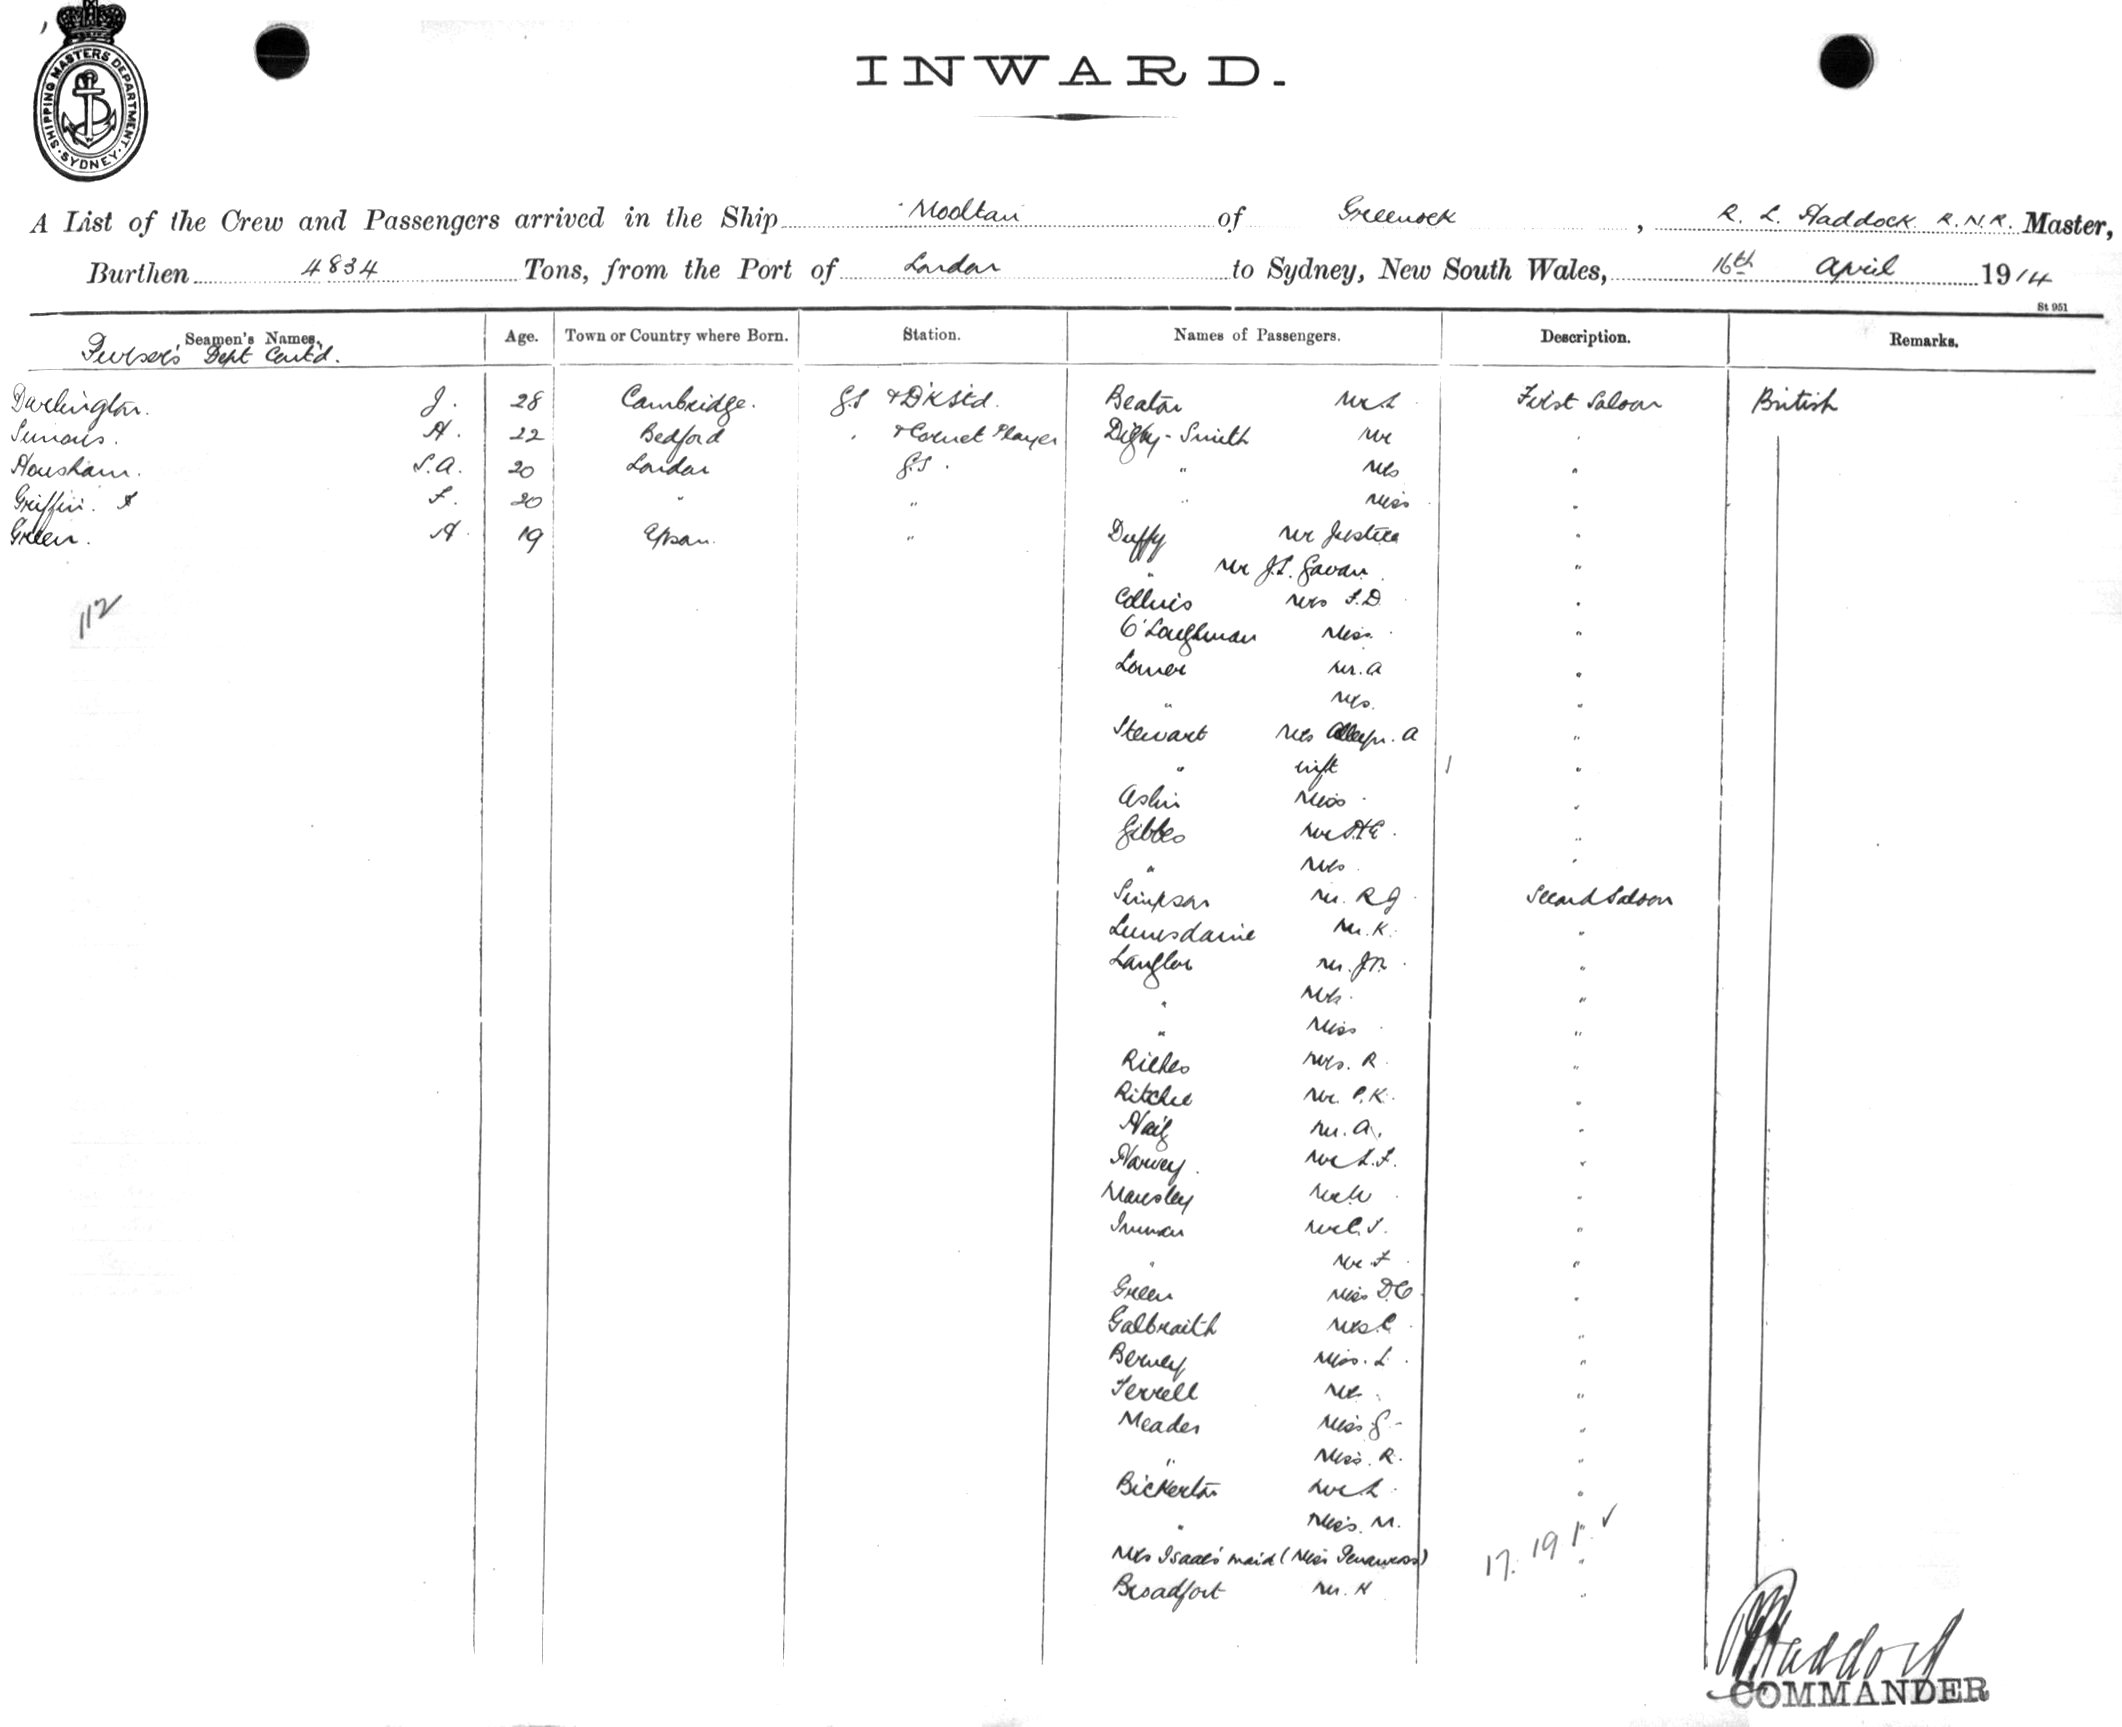 SHIPPING MASTERS DEPARTMENT
SYDNEY
INWARD.
A List of the Crew and Passengers arrived in the Ship Mooltan of Greenock, R. L. Haddock R.N.R. Master,
Burthen 4834 Tons, from the Port of London to Sydney, New South Wales, 16th April 1914
St 951
Seamen's Names, Age. Town or Country where Born. Station. Names of Passengers. Description. Remarks.
Purser's Dept Cont'd.
Darlington. J. 28 Cambridge. G.S + D'K Std. Beaton Mr L First Saloon British
Simons. H. 22 Bedford " + Cornet Player Digby-Smith Mr "
Housham. S.A. 20 London G.S. " Mrs "
Griffin. F. 20 " " " Miss "
Green. A. 19 Epsom. " Duffy Mr Justice "
" Mr J.L. Gavan "
112
Collins Mrs F.D. "
O'Loughman Miss "
Lower Mr. A "
" Mrs. "
Stewart Mrs A "
" inft "
Miss "
Gibbes Mr "
" Mrs "
Simpson Mr. R J Second Saloon
Lumsdaine Mr. K. "
Langlor Mr. "
" Mrs. "
" Miss "
Riches Mrs. R "
Ritchie Mr. P.K. "
Mr. A. "
Harvey. Mr L.F. "
Mousley Mr W "
Inman Mr C. S. "
" Mr F "
Green Miss D.C "
Galbraith Mrs. C "
Berney Miss. L. "
Terrell Mr. "
Meader Miss G - "
" Miss. R. "
Bickerton Mr L "
" Miss. M. "
Mrs Isaac's maid (Miss) "
Broadfort Mr. H "
17. 19 1. ✓
Haddock
COMMANDER